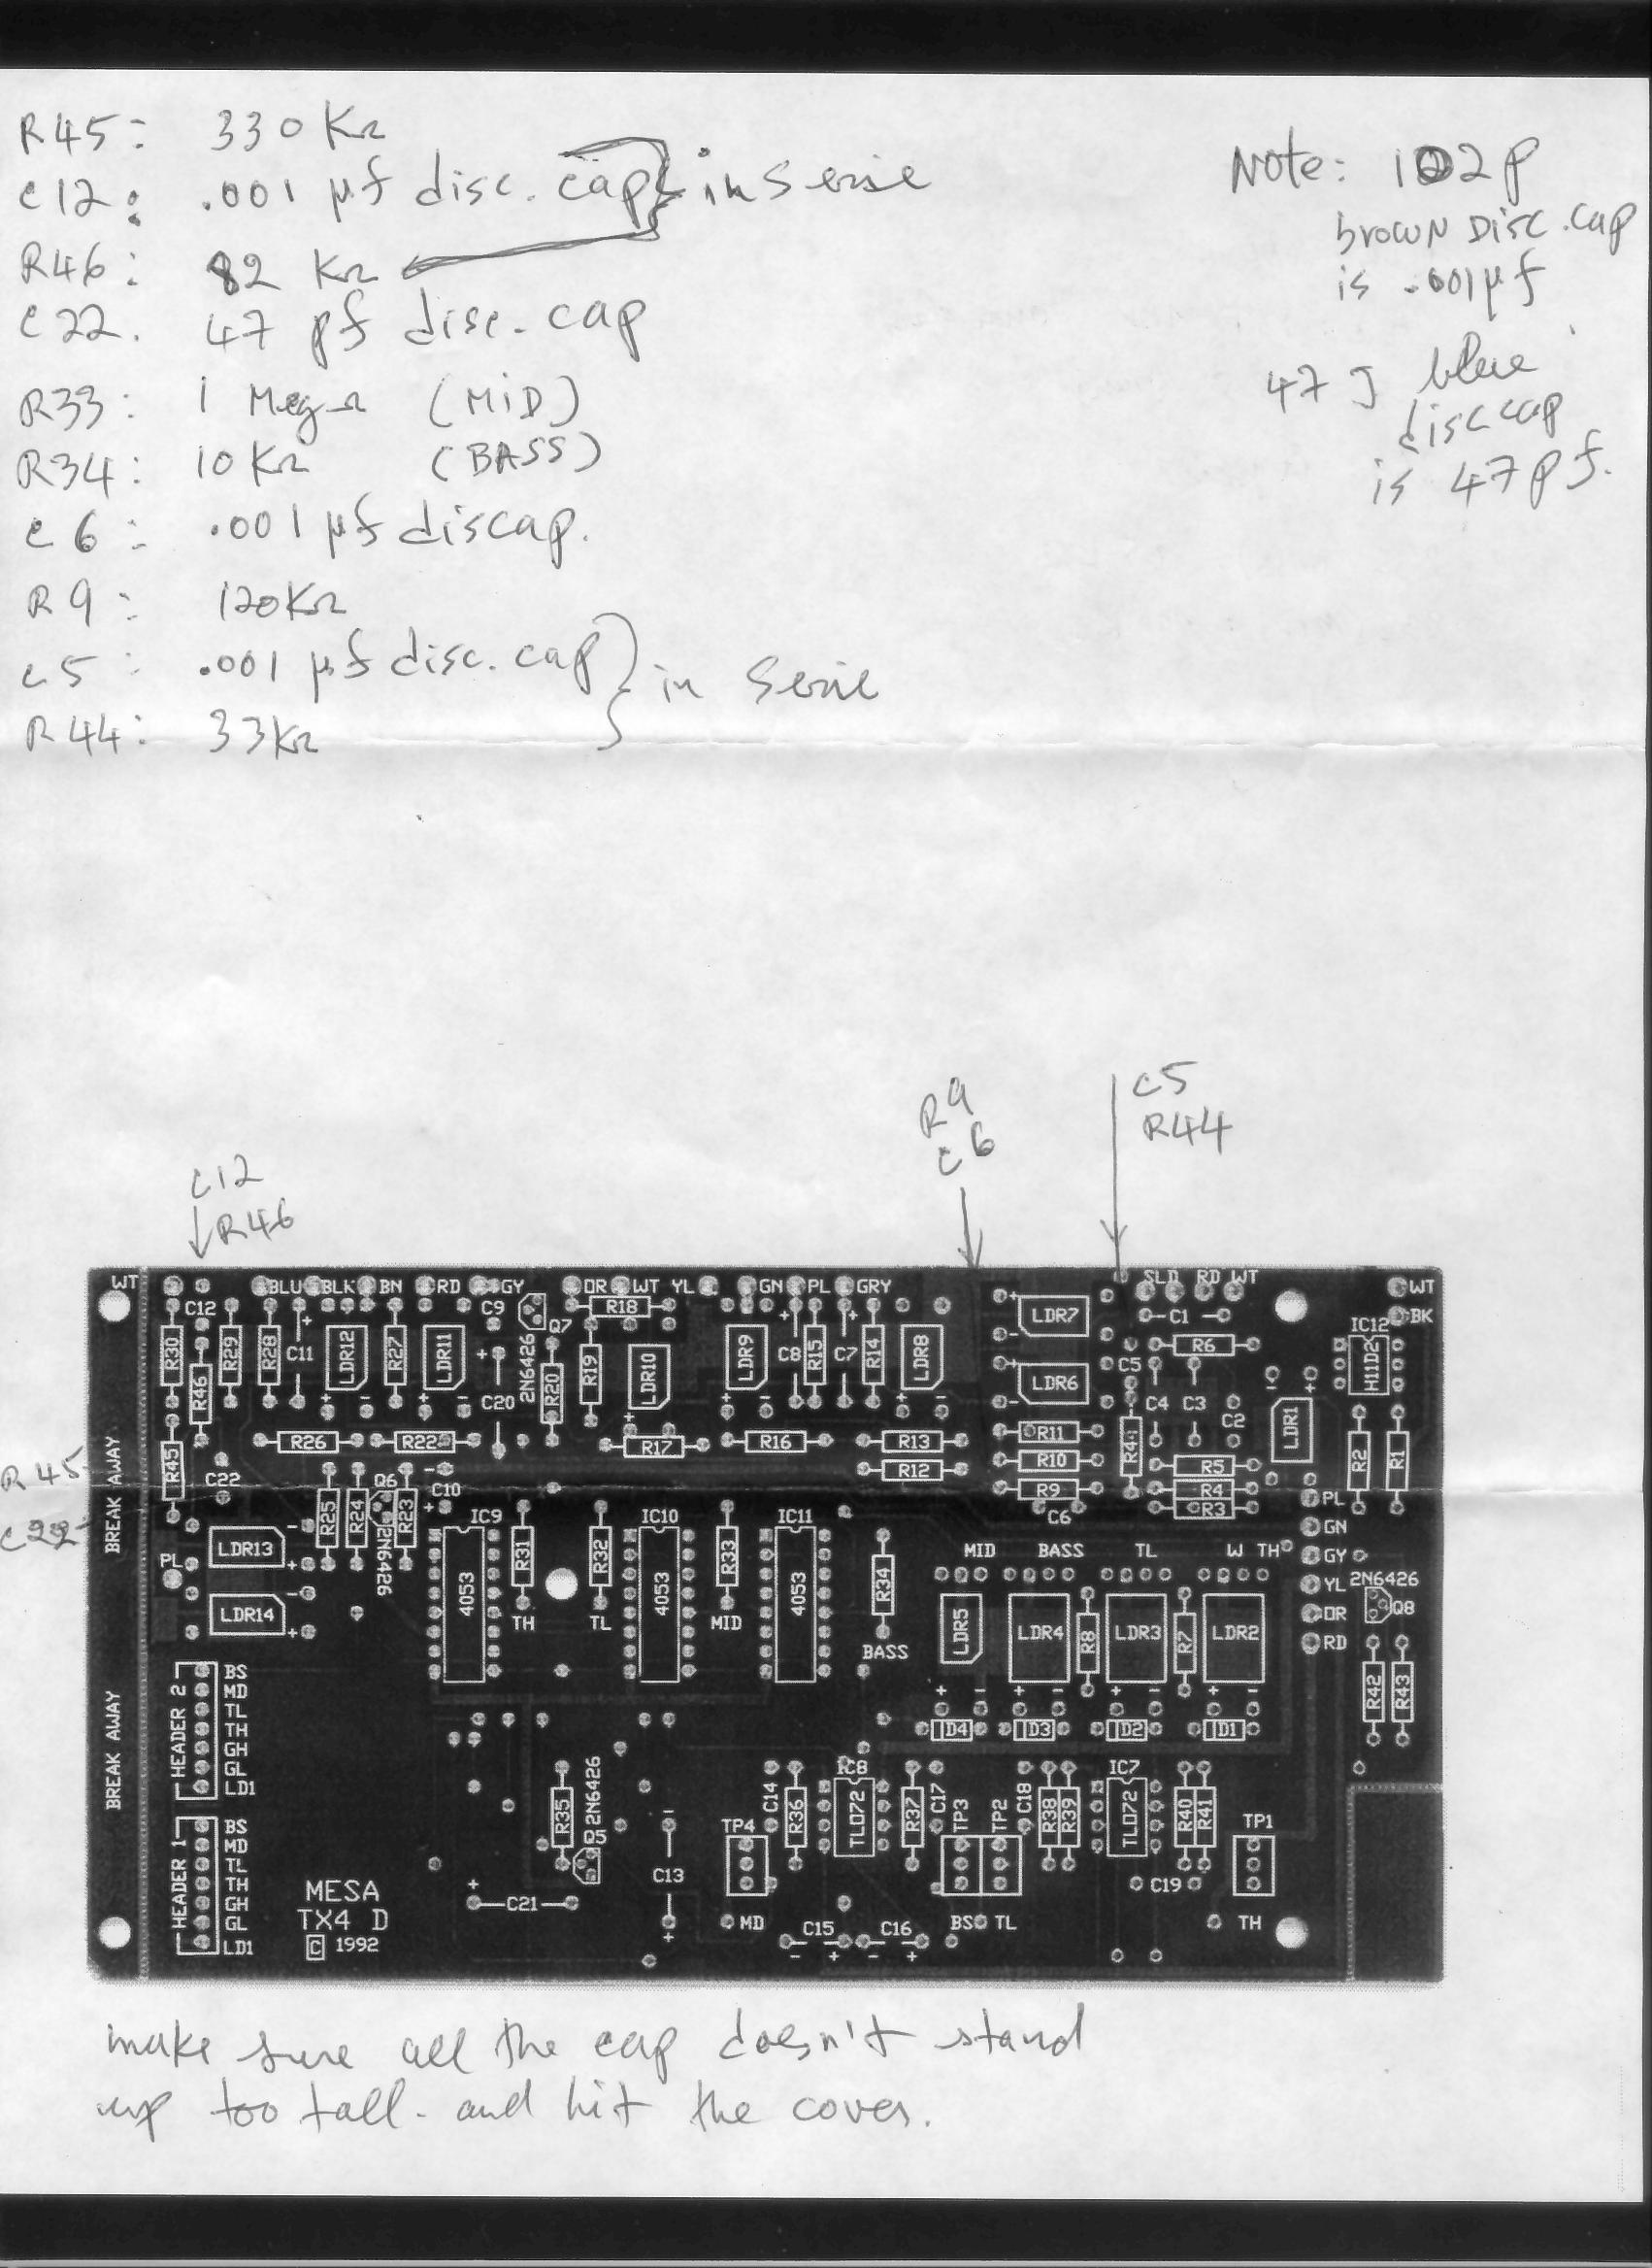 R45: 330 KΩ
C12: .001 µf disc. cap } in serie
R46: 82 KΩ
C22. 47 pf disc. cap
R33: 1 MegΩ (MiD)
R34: 10 KΩ (BASS)
C6: .001 µf discap.
R9: 120KΩ
C5: .001 µf disc. cap } in serie
R44: 33KΩ
Note: 102p
brown Disc. cap
is .001µf
47 J blue
disc cap
is 47pf.
R9
C6
C5
R44
C12
R46
R45
C22
WT BLU BLK BN RD GY OR WT YL GN PL GRY SLD RD WT WT
BK
C12 C9 Q7 R18 LDR7 C1 IC12
R30 R46 R29 R28 C11 LDR12 R27 LDR11 2N6426 R20 R19 LDR10 LDR9 C8 R15 C7 R14 LDR8 R6 H11D2
C20 LDR6 C5 C4 C3 C2 LDR1
R45 R26 R22 R17 R16 R13 R11 R5 R2 R1
R12 R10 R4
C22 R25 R24 Q6 2N6426 R23 C10 R9 R3 PL
C6
BREAK AWAY
IC9 IC10 IC11 GN
LDR13 R31 R32 R33 R34 MID BASS TL W TH GY
PL 4053 4053 4053 YL 2N6426
LDR14 TH TL MID LDR5 LDR4 R8 LDR3 R7 LDR2 OR Q8
BASS RD
R42 R43
BREAK AWAY
HEADER 2
BS
MD
TL
TH
GH
GL
LD1
D4 D3 D2 D1
IC8 IC7
R35 2N6426 Q5 C14 R36 TL072 R37 C17 TP3 TP2 C18 R38 R39 TL072 R40 R41
TP4 TP1
HEADER 1
BS
MD
TL
TH
GH
GL
LD1
C13 C19
C21 MD C15 C16 BS TL TH
MESA
TX4 D
C 1992
make sure all the cap doesn't stand
up too tall. and hit the cover.